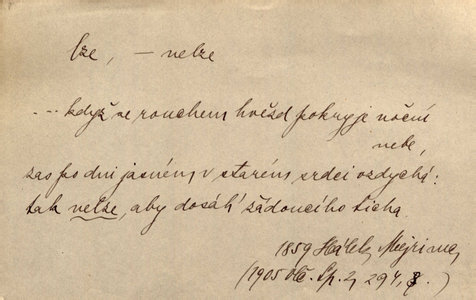 lze, — nelze
... když se rouchem hvězd pokryje noční
nebe,
zas po dni jasném v starém srdci vzdychá:
tak nelze, aby dosáh' žádoucího ticha
1859 Hálek, Mejrima
(1905 Sp. 2, 294, 8. )